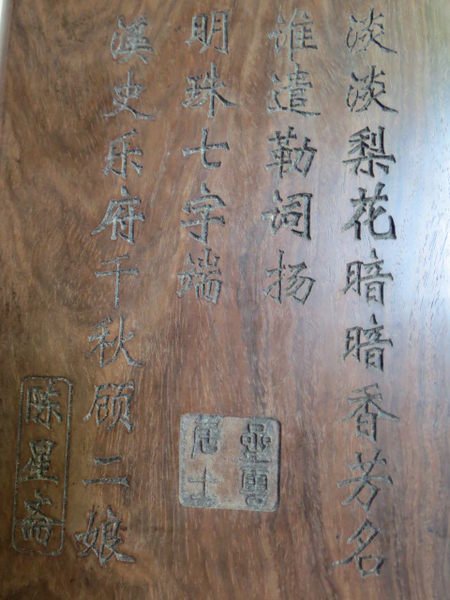 淡淡梨花暗暗香芳名
谁遣勒词扬
明珠七字端
溪史乐府千秋顾二娘
雲居士
陈星斋